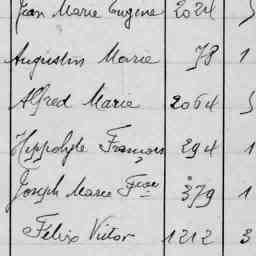 Jean Marie Eugène 2024 5
Augustin Marie 78 1
Alfred Marie 2064 5
Hippolyte François 294 1
Joseph Marie Fçois 379 1
Félix Victor 1212 3